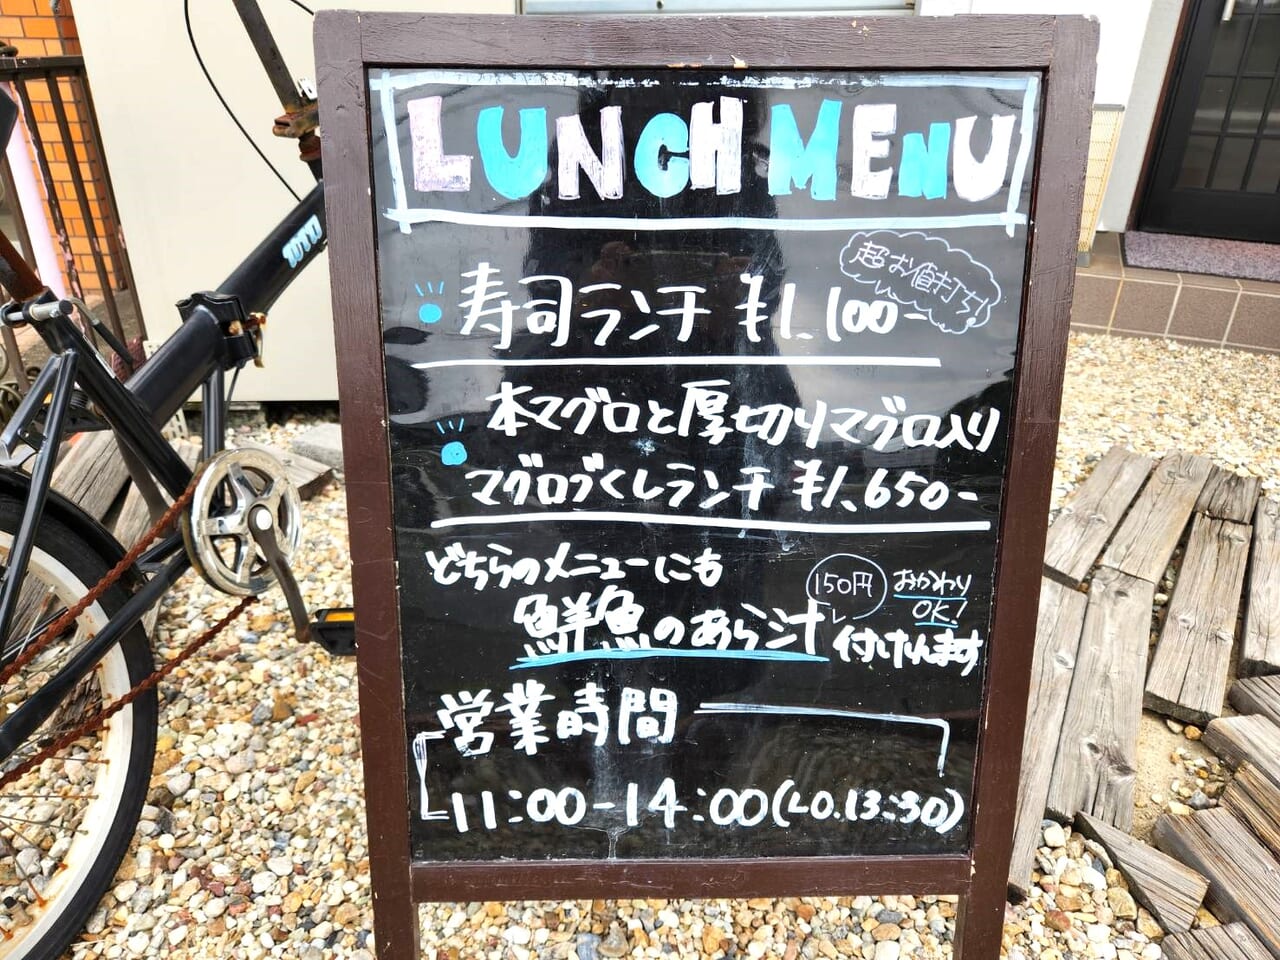 LUNCH MENU
超お値打ち!
寿司ランチ ¥1,100-
本マグロと厚切りマグロ入り
マグロづくしランチ ¥1,650-
どちらのメニューにも
150円
おかわり
OK!
鮮魚のあら汁 付けれます
営業時間
11:00-14:00(L.O.13:30)